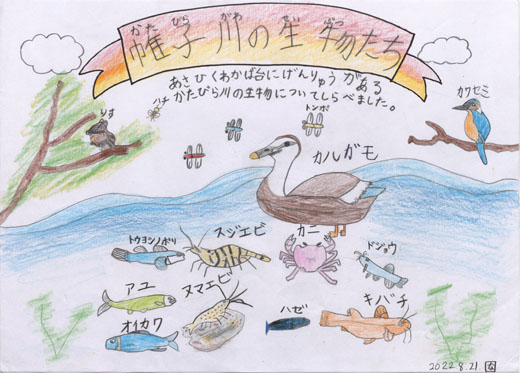 帷子川の生物たち
かた びら がわ せい ぶつ
あさひくわかば台にげんりゅうがある
かたびら川の生物についてしらべました。
カワセミ
りす
ハチ
トンボ
カルガモ
トウヨシノボリ
スジエビ
カニ
ドジョウ
アユ
ヌマエビ
ハゼ
ギバチ
オイカワ
2022.8.21